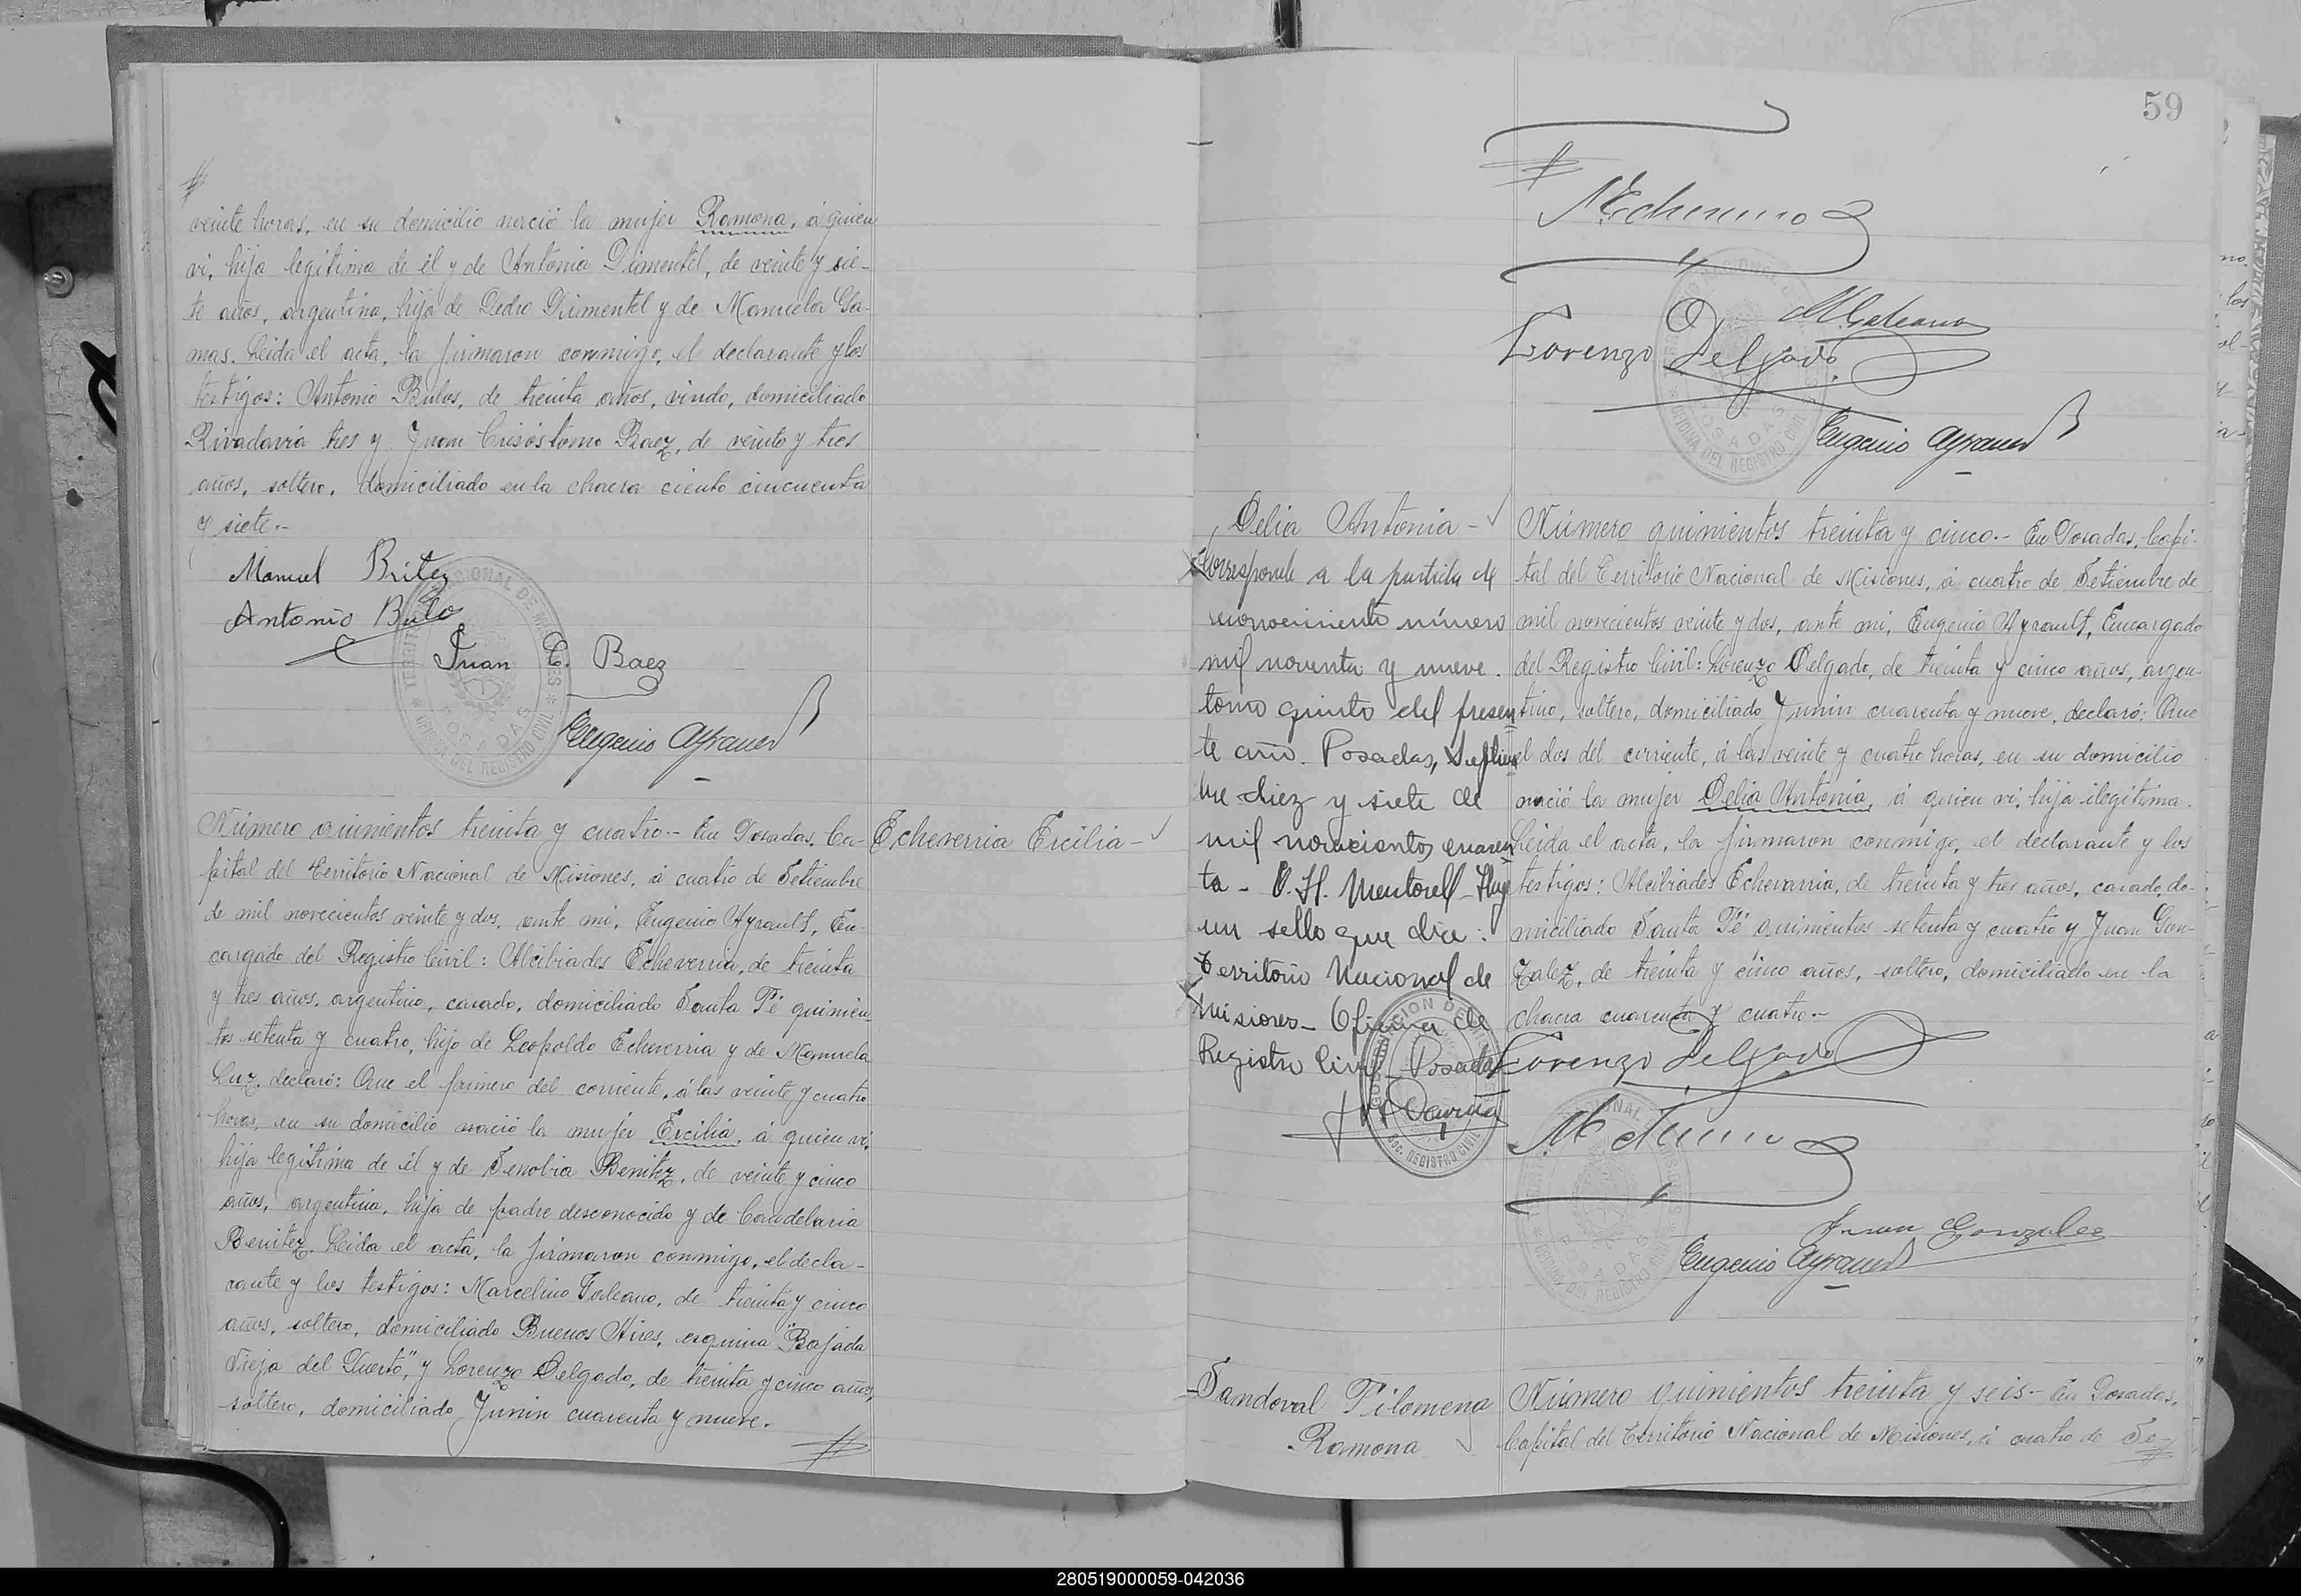 veinte horas, en su domicilio nació la mujer Ramona, á quien
vi, hija legítima de él y de Antonia Pimentel, de veinte y sie-
te años, argentina, hija de Pedro Pimentel y de Manuela Ga-
mas. Leida el acta, la firmaron conmigo, el declarante y los
testigos: Antonio Bulos, de treinta años, viudo, domiciliado
Rivadavia tres y Juan Crisóstomo Baez, de veinte y tres
años, soltero, domiciliado en la chacra ciento cincuenta
y siete.-
Manuel Britez
Antonio Bulo
Juan C. Baez
Eugenio Ayrault
Número quinientos treinta y cuatro.- En Posadas, Ca-
Echeverria Ercilia -
pital del Territorio Nacional de Misiones, á cuatro de Setiembre
de mil novecientos veinte y dos, ante mi, Eugenio Ayrault, En-
cargado del Registro Civil: Alcibiades Echeverria, de treinta
y tres años, argentino, casado, domiciliado Santa Fé quinien-
tos setenta y cuatro, hijo de Leopoldo Echeverria y de Manuela
Luz, declaró: Que el primero del corriente, á las veinte y cuatro
horas, en su domicilio nació la mujer Ercilia, á quien vi,
hija legítima de él y de Senobia Benitez, de veinte y cinco
años, argentina, hija de padre desconocido y de Candelaria
Benitez. Leida el acta, la firmaron conmigo, el decla-
rante y los testigos: Marcelino Galeano, de treinta y cinco
años, soltero, domiciliado Buenos Aires, esquina "Bajada
Vieja del Puerto", y Lorenzo Delgado, de treinta y cinco años,
soltero, domiciliado Junin cuarenta y nueve.
59
M Galeano
Lorenzo Delgado
Eugenio Ayrault
TERRITORIO NACIONAL DE MISIONES
POSADAS
OFICINA DEL REGISTRO CIVIL
Delia Antonia -
Corresponde a la partida de
reconocimiento número
mil noventa y nueve.
tomo quinto del presen
te año. Posadas, Septiem
bre diez y siete de
mil novecientos cuaren
ta - O. H. Mentorell - Hay
un sello que dice:
Territorio Nacional de
Misiones - Oficina de
Registro Civil - Posadas
Número quinientos treinta y cinco.- En Posadas, Capi-
tal del Territorio Nacional de Misiones, á cuatro de Setiembre de
mil novecientos veinte y dos, ante mi, Eugenio Ayrault, Encargado
del Registro Civil: Lorenzo Delgado, de treinta y cinco años, argen-
tino, soltero, domiciliado Junin cuarenta y nueve, declaró: Que
el dos del corriente, á las veinte y cuatro horas, en su domicilio
nació la mujer Delia Antonia, á quien vi, hija ilegítima.
Leida el acta, la firmaron conmigo, el declarante y los
testigos: Alcibiades Echevarria, de treinta y tres años, casado, do-
miciliado Santa Fé quinientos setenta y cuatro y Juan Gon-
zalez, de treinta y cinco años, soltero, domiciliado en la
chacra cuarenta y cuatro.-
Lorenzo Delgado
Juan Gonzalez
Eugenio Ayrault
Sandoval Filomena
Ramona
Número quinientos treinta y seis.- En Posadas,
Capital del Territorio Nacional de Misiones, á cuatro de Se-
280519000059-042036